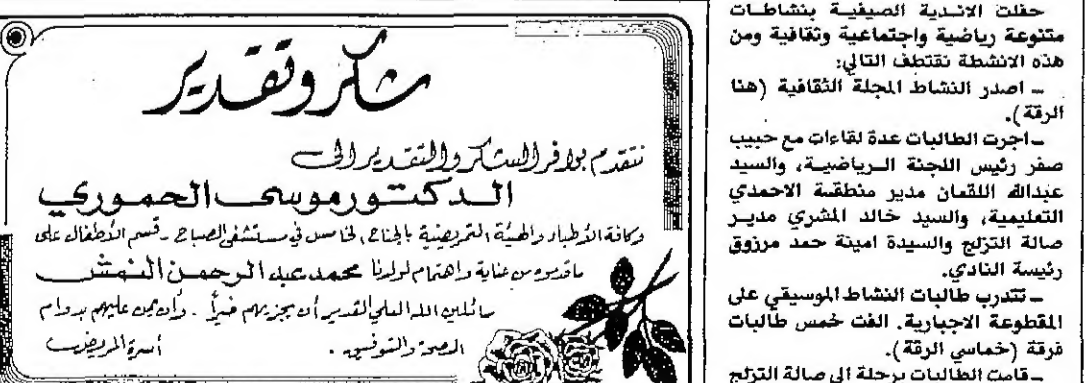 حفلت الاندية الصيفيــة بنشاطــات
متنوعة رياضية واجتماعية وثقافية ومن
هذه الانشطة نقتطف التالي:
ـ اصدر النشاط المجلة الثقافية (هنا
الرقة).
ـ اجرت الطالبات عدة لقاءات مع حبيب
صفر رئيس اللجنة الـرياضيــة، والسيد
عبدالله اللقمان مدير منطقــة الاحمدي
التعليمية، والسيد خالد المشري مديــر
صالة التزلج والسيدة امينة حمد مرزوق
رئيسة النادي.
ـ تتدرب طالبات النشاط الموسيقي على
المقطوعة الاجبارية. الفت خمس طالبات
فرقة (خماسي الرقة).
ـ قامت الطالبات برحلة الى صالة التزلج
شكر وتقدير
نتقدم بوافر الشكر والتقدير الى
الـدكتـور موسى الحمـوري
وكافة الأطباء والهيئة التمريضية بالجناح الخامس في مستشفى الصباح ـ قسم الأطفال على
ماقدموه من عناية واهتمام لولدنا محمد عبد الرحمن النمش
سائلين الله العلي القدير أن يجزيهم خيراً . وأن يمن عليهم بدوام
الصحة والتوفيق . أسرة المريض